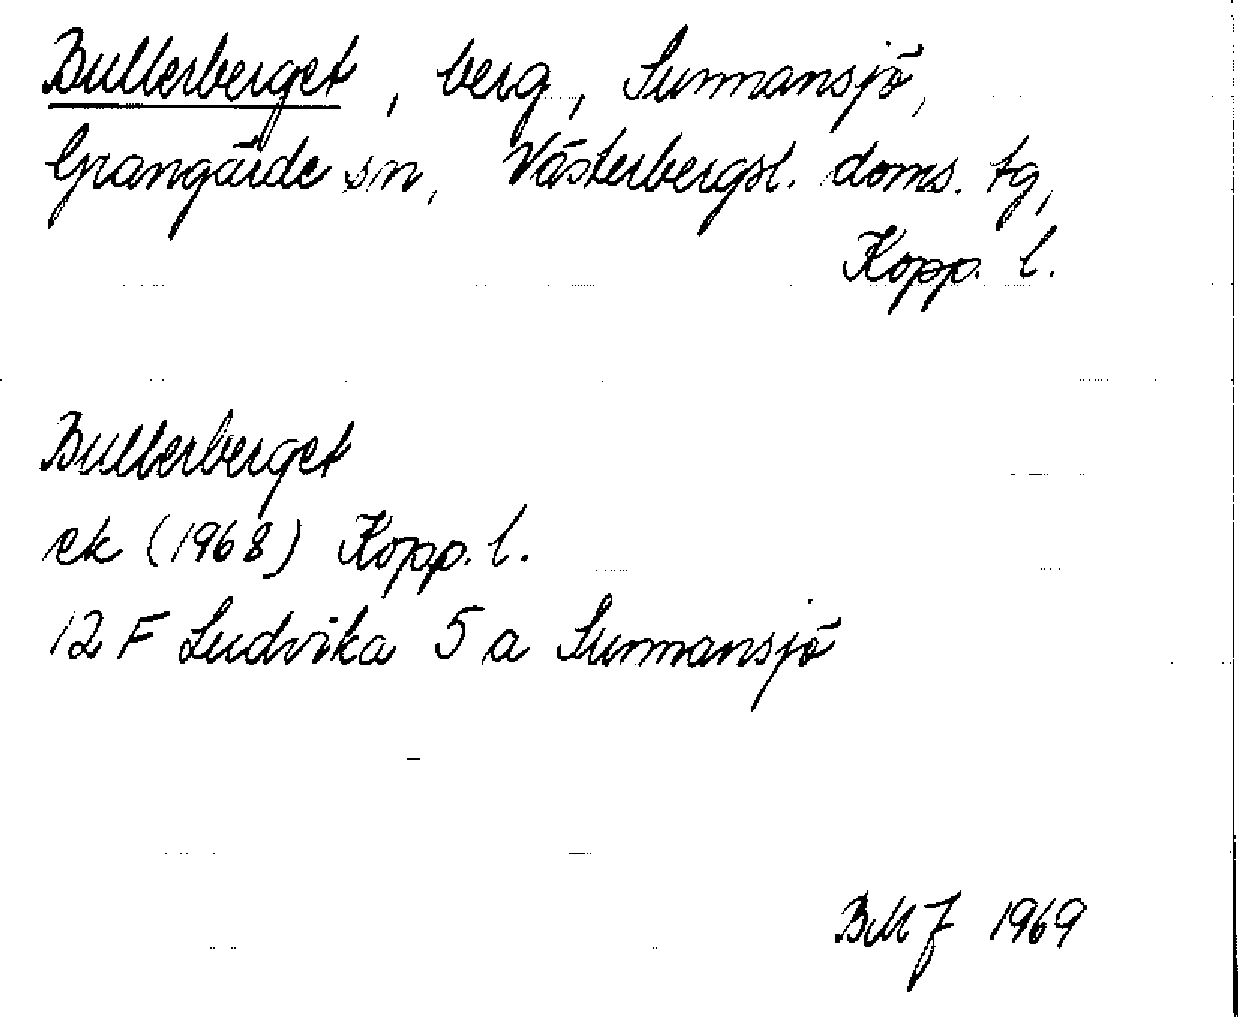 Bullerberget, berg, Sunnansjö,
Grangärde sn, Västerbergsl. doms. tg,
Kopp. l.
Bullerberget
ek (1968) Kopp. l.
12 F Ludvika 5 a Sunnansjö
BMJ 1969